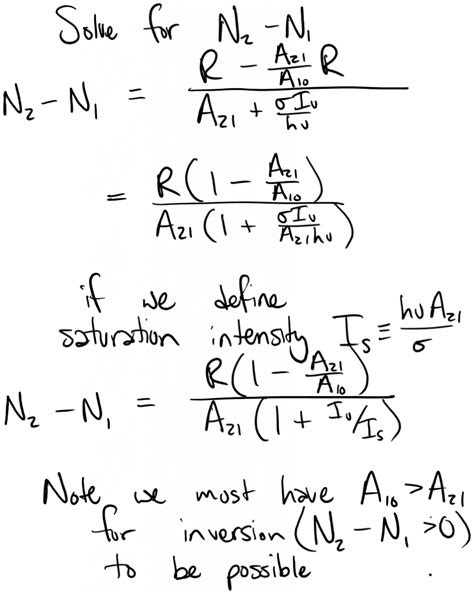 Solve for N₂ - N₁
N₂ - N₁ = (R - (A₂₁/A₁₀) R) / (A₂₁ + σIᵤ/hυ)
= R(1 - A₂₁/A₁₀) / (A₂₁(1 + σIᵤ/A₂₁hυ))
if we define
saturation intensity Iₛ ≡ hυA₂₁/σ
N₂ - N₁ = R(1 - A₂₁/A₁₀) / (A₂₁(1 + Iᵤ/Iₛ))
Note we must have A₁₀ > A₂₁
for inversion (N₂ - N₁ > 0)
to be possible .